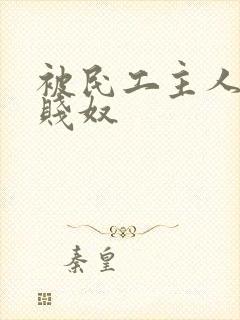 被民工主人
賤奴
秦皇